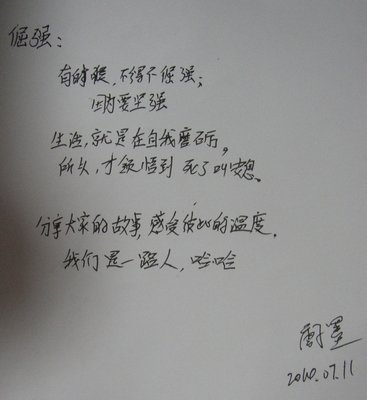 倔强：
有的时候，不得不倔强；
因为要坚强
生活，就是在自我磨砺。
所以，才领悟到 死了叫安息。
分享大家的故事，感受彼此的温度。
我们是一路人，哈哈
2010.07.11